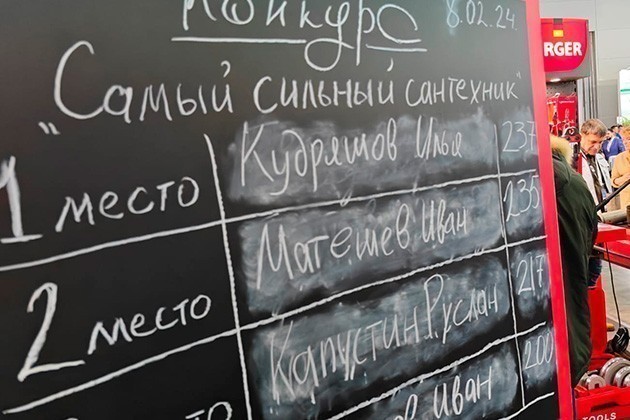 Конкурс
8.02.24.
"Самый сильный сантехник"
1 место Кудряшов Илья 237
2 место Матешев Иван 235
Капустин Руслан 217
Иван 200
RGER
TOOLS